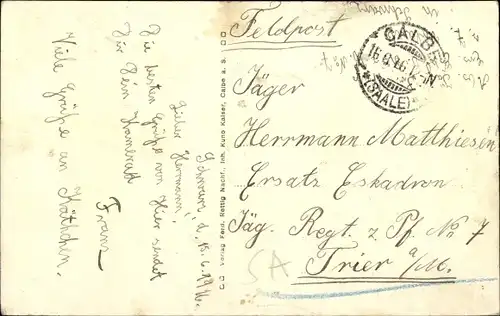 Feldpost
CALBE
(SAALE)
Jäger
Herrmann Matthiesen
Ersatz Eskadron
Jäg. Regt. z. Pf. No 7
Trier a/M.
SA
Verlag Ferd. Rettig Nachf., Inh. Kuno Kaiser, Calbe a. S.
d. 15.6.1916.
Lieber Herrmann!
Die besten Grüße von hier sendet
Dir Dein Kamerad
Franz
Viele Grüße an Käthchen.